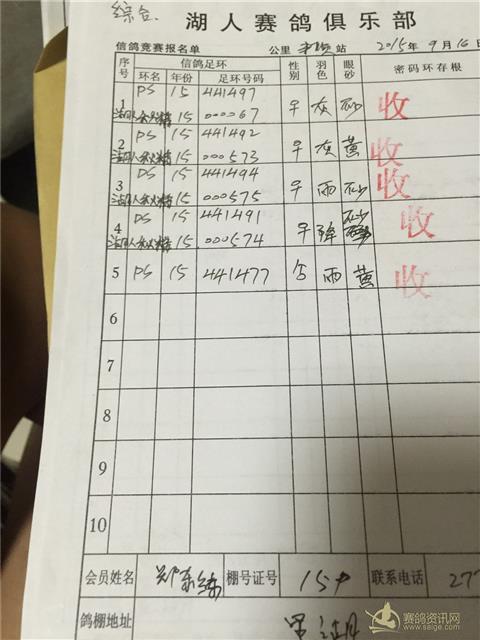 综合
湖人赛鸽俱乐部
信鸽竞赛报名单 公里 站 2015年9月16日
序号 信鸽足环 性别 羽色 眼砂 密码环存根
环名 年份 足环号码
1 PS 15 441497 灰 砂 收
湖人 15 000067
2 PS 15 441492 灰 黄 收
湖人 15 000573
3 PS 15 441494 雨 砂 收
湖人 15 000575
4 PS 15 441491 砂 收
湖人 15 000574
5 PS 15 441477 雨 黄 收
6
7
8
9
10
会员姓名 郑 棚号证号 15 联系电话 277
鸽棚地址
赛鸽资讯网
www.saige.com